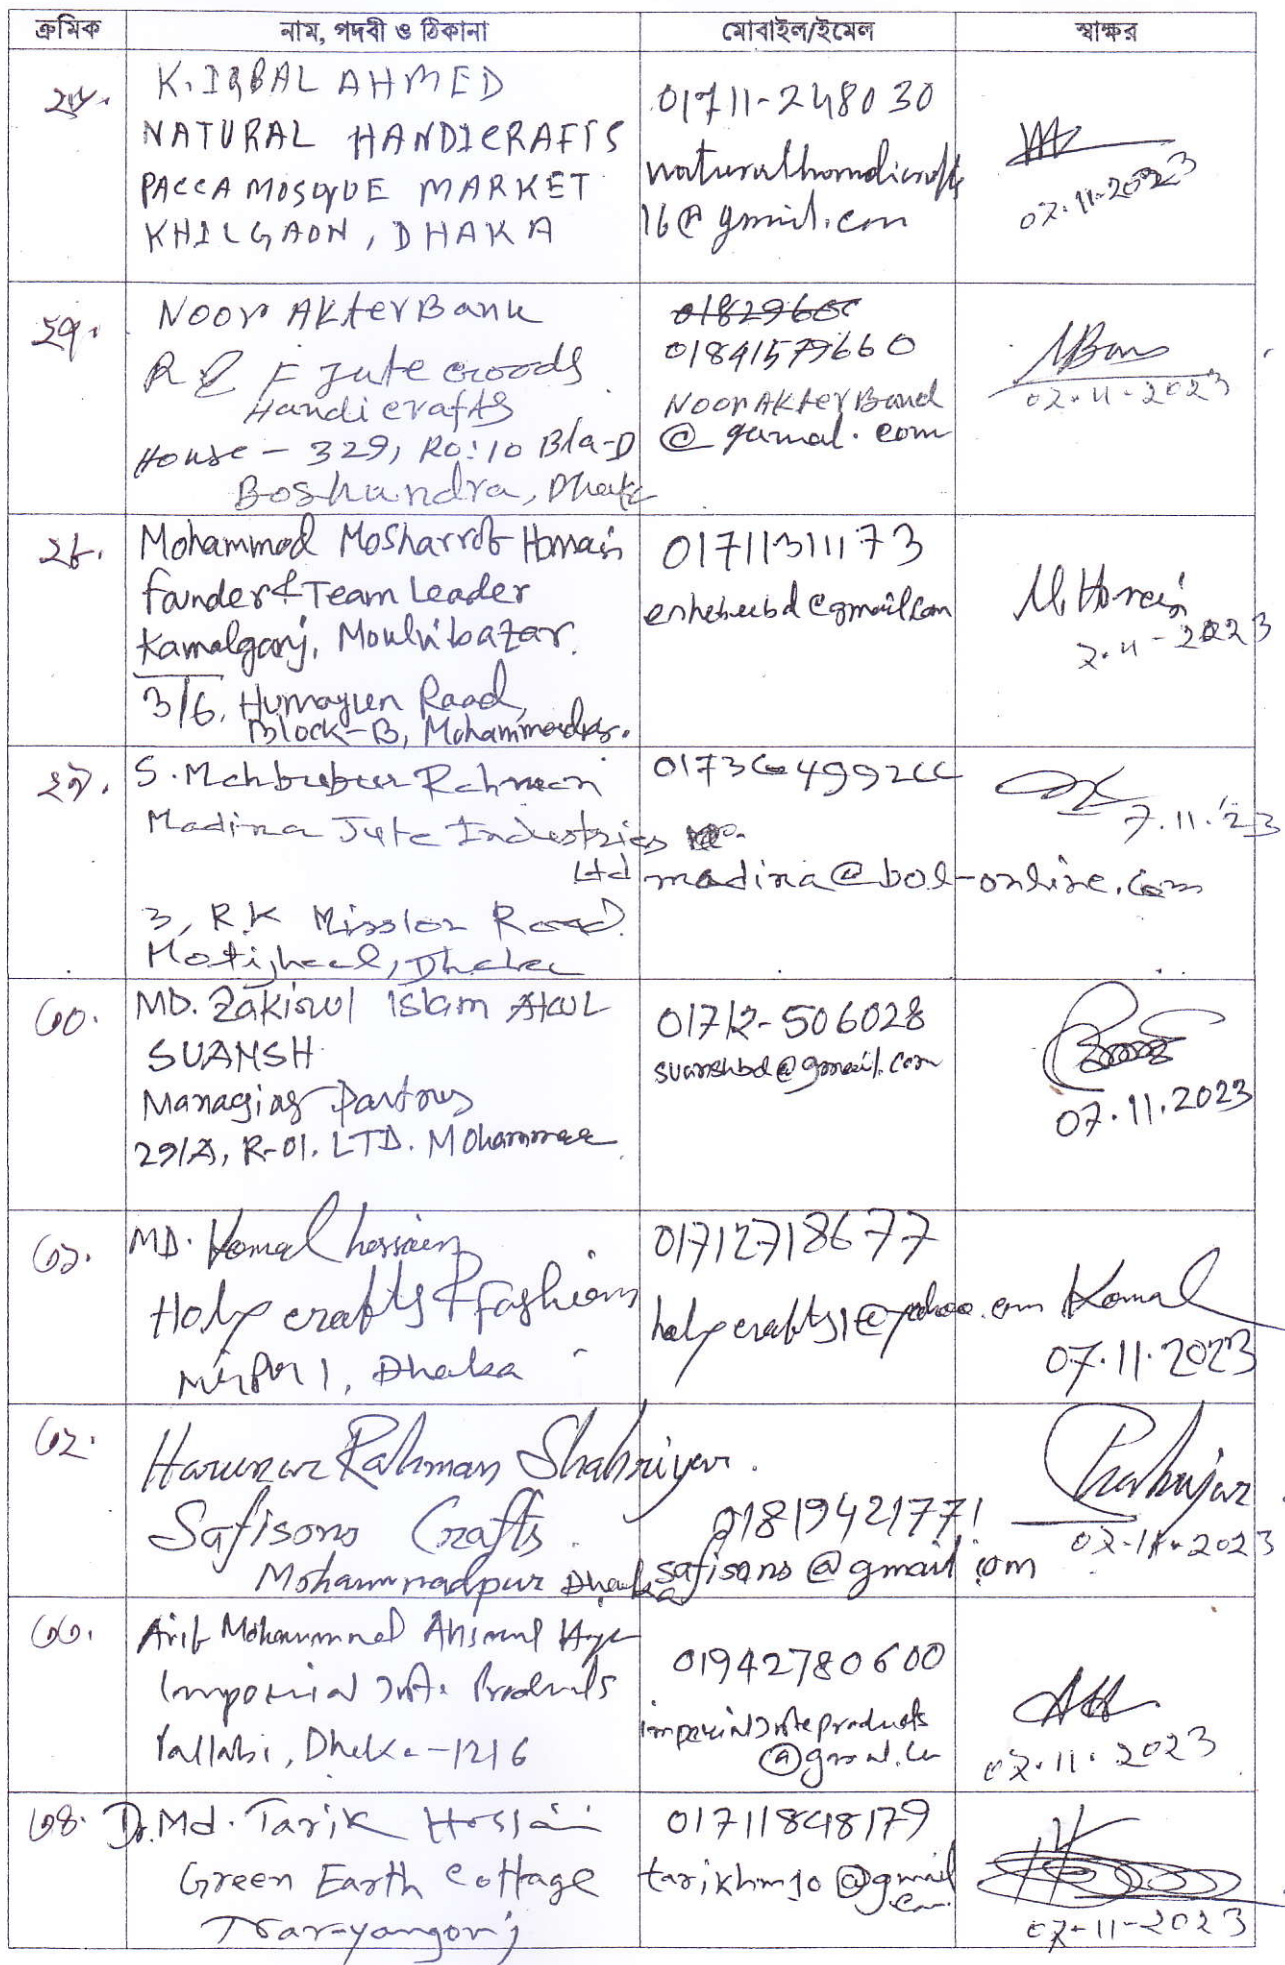 ক্রমিক নাম, পদবী ও ঠিকানা মোবাইল/ইমেল স্বাক্ষর
২৬.
K. IQBAL AHMED
NATURAL HANDICRAFTS
PACCA MOSQUE MARKET
KHILGAON, DHAKA
01711-248030
naturalhandicrafts
16@gmail.com
07.11.2023
২৭.
Noor Akter Banu
R & F Jute Goods
Handicrafts
House - 329, Ro: 10 Bla-D
Boshundra, Dhaka
0182960
01841579660
NoorAkterBanu
@gamal.com
07-11-2023
২৮.
Mohammod Mosharrof Hossain
founder & Team Leader
Kamalganj, Moulvibazar.
3/6, Humayun Road,
Block-B, Mohammadpur.
01711311173
@gmail.com
M. Hossain
7.11-2023
২৯.
S. Mahbubur Rahman
Madina Jute Industries
Ltd
3, R.K Mission Road
Motijheel, Dhaka
madina@bol-online.com
7.11.23
৩০.
MD. Zakirul Islam
SUANSH
Managing Partner
29/A, R-01, LTD. Mohammad
01712-506028
suanshbd@gmail.com
07.11.2023
৩১.
MD. Komal hossain
Holy crafts & fashions
Mirpur 1, Dhaka
01712718677
holycrafts1@yahoo.com
Komal
07.11.2023
৩২.
Harunur Rahman Shahriyar.
Safisons Crafts.
Mohammadpur Dhaka
01819421771
safisons@gmail.com
Shahriyar
07-11-2023
৩৩.
Arif Mohammad Ahsanul Haque
Imperial Jute Products
Pallabi, Dhaka-1216
01942780600
imperialJuteproducts
@gmail.com
07.11.2023
৩৪.
Dr. Md. Tarik Hossain
Green Earth Cottage
Narayangonj
01711848179
tarikhm10@gmail
.com
07-11-2023